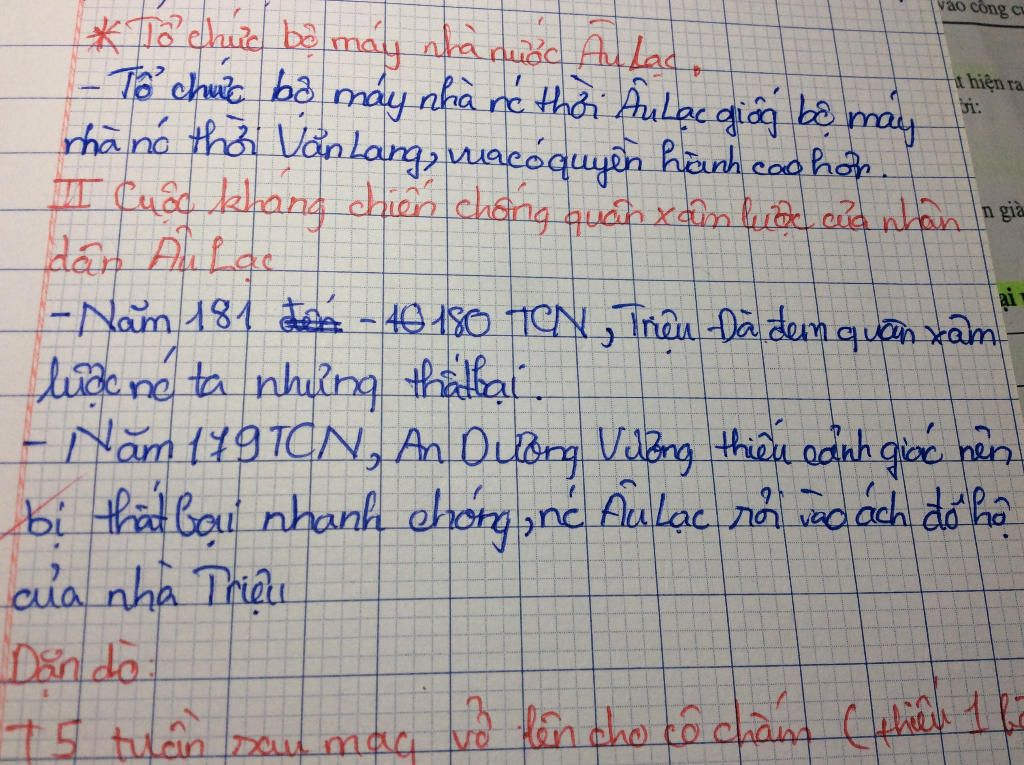 * Tổ chức bộ máy nhà nước Âu Lạc.
- Tổ chức bộ máy nhà nc thời Âu Lạc giống bộ máy
nhà nc thời Văn Lang, vua có quyền hành cao hơn.
III Cuộc kháng chiến chống quân xâm lược của nhân
dân Âu Lạc
- Năm 181 - 180 TCN, Triệu Đà đem quân xâm
lược nc ta nhưng thất bại.
- Năm 179 TCN, An Dương Vương thiếu cảnh giác nên
bị thất bại nhanh chóng, nc Âu Lạc rơi vào ách đô hộ
của nhà Triệu
Dặn dò:
+ 5 tuần sau mag vở lên cho cô chấm ( thiếu 1
vào công
t hiện ra
ời:
n già
ại